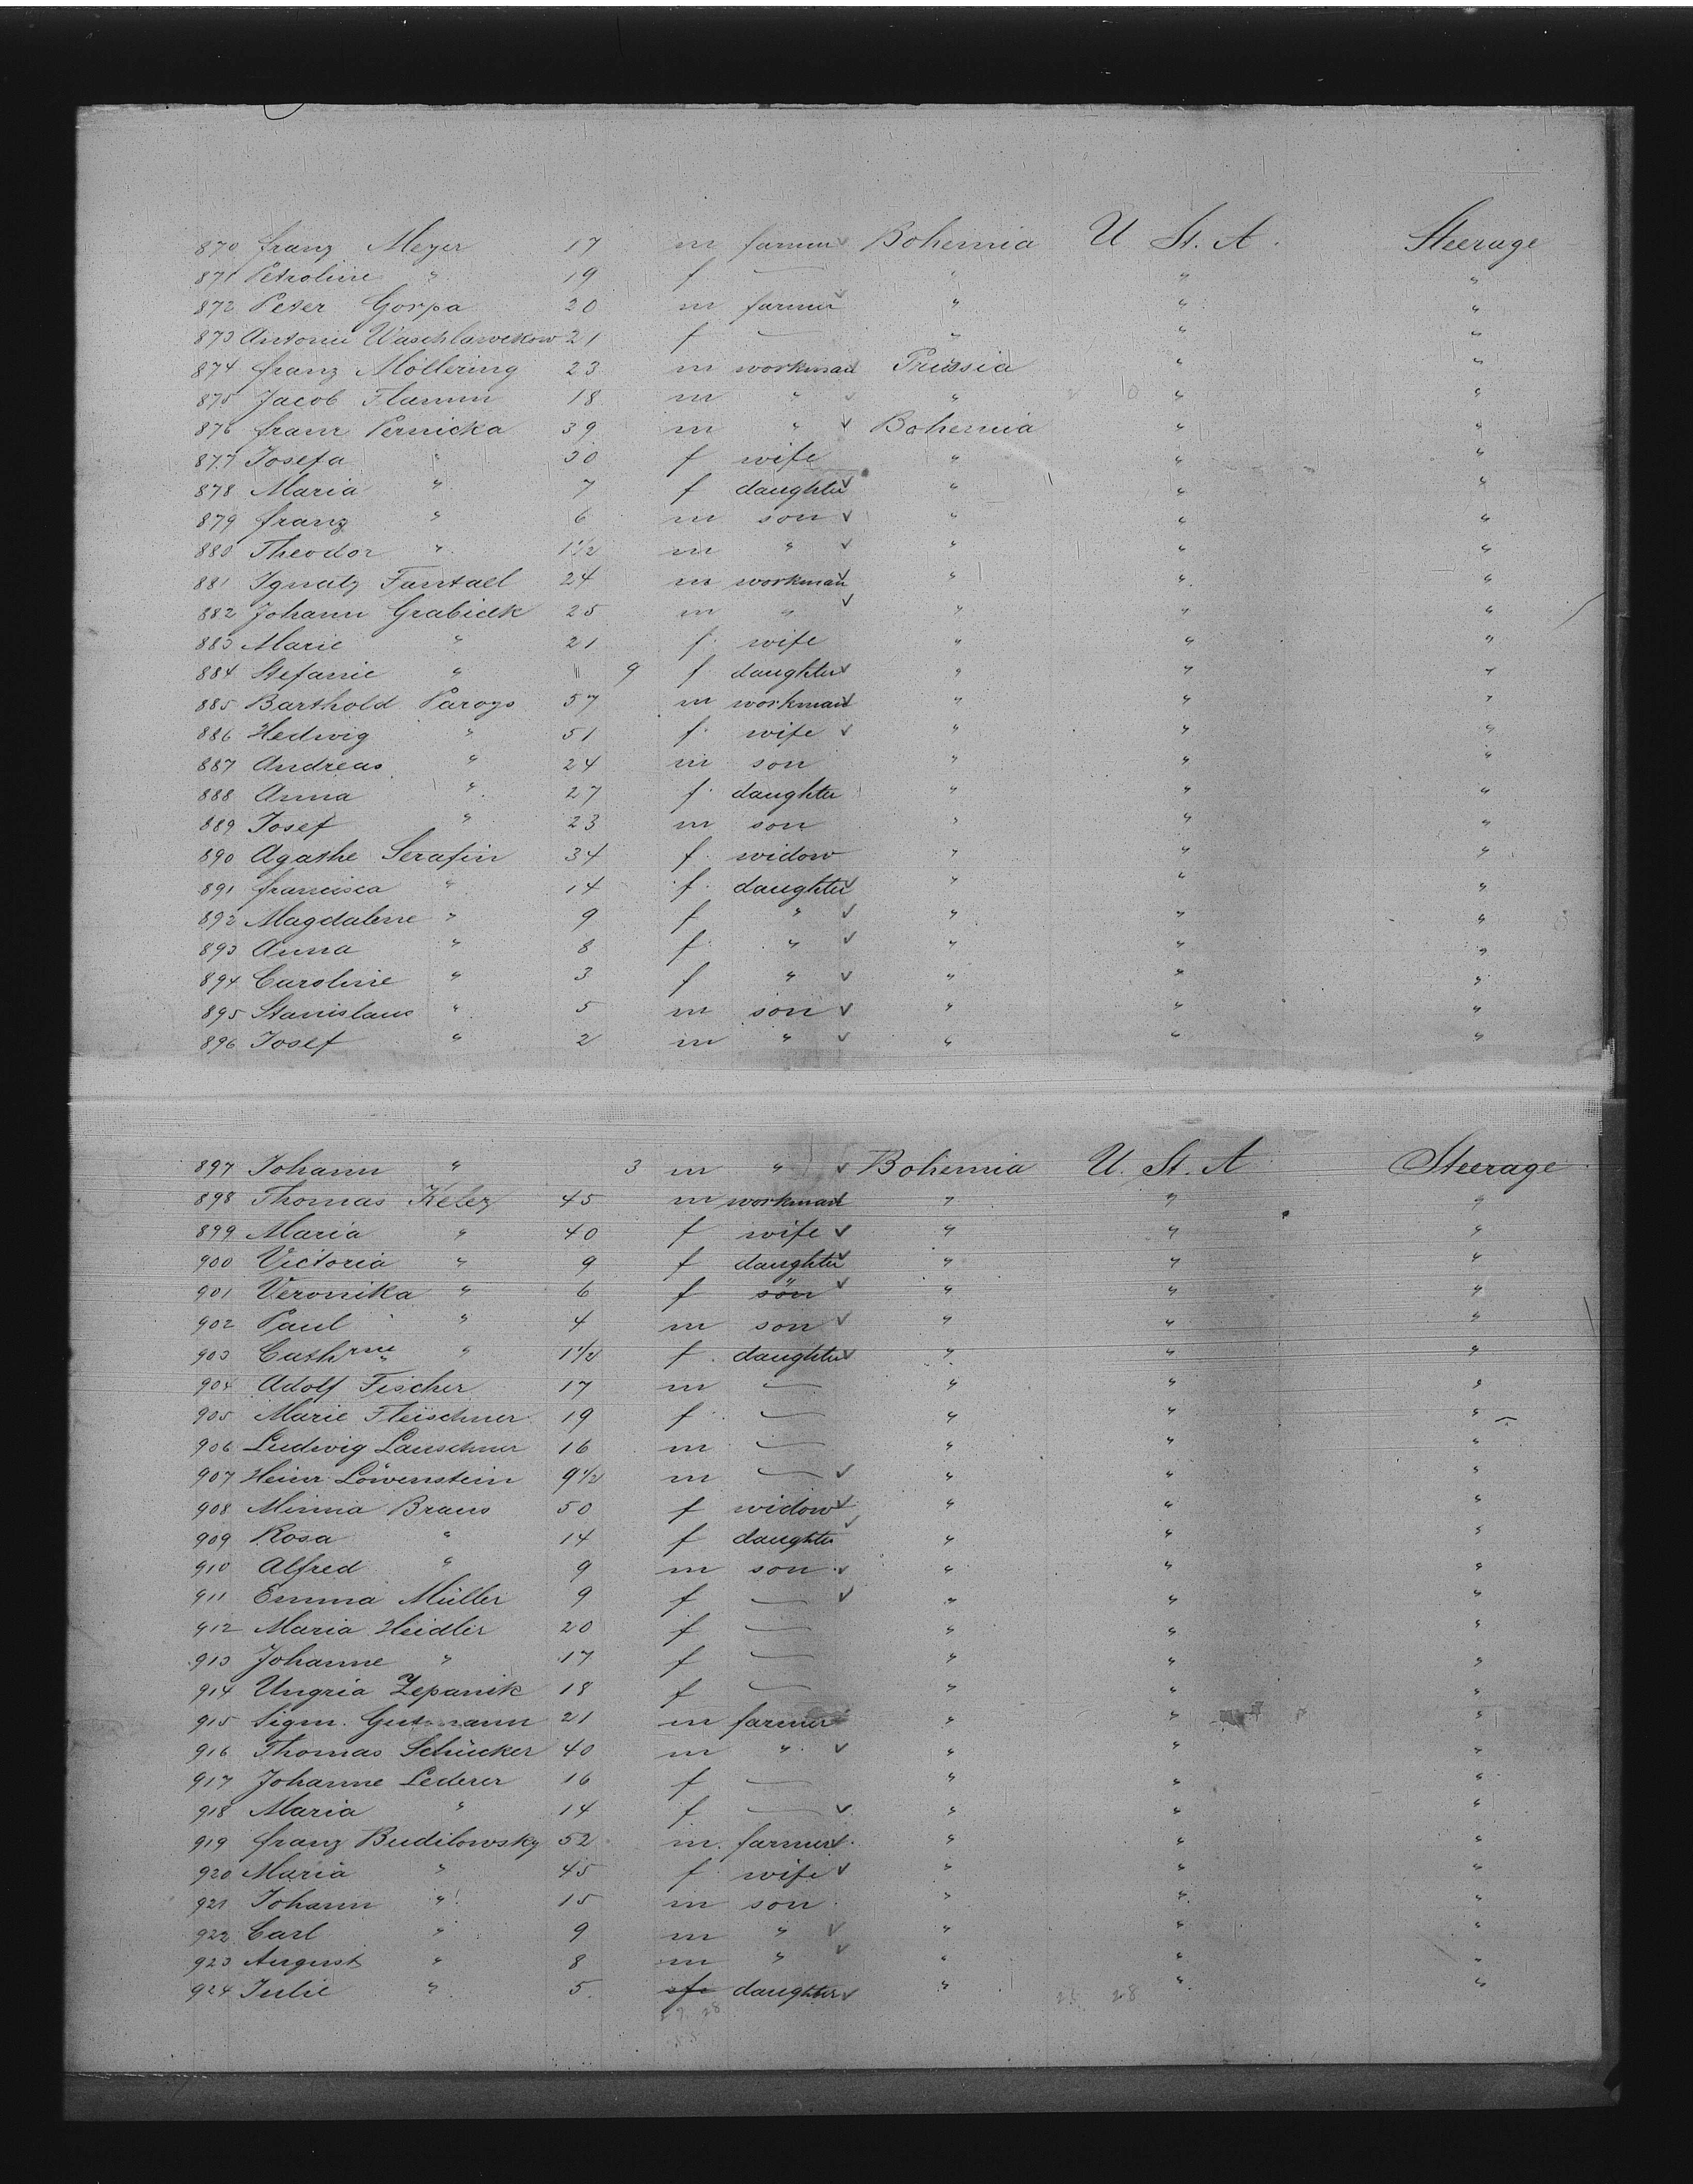 870 Franz Meyer 17 m farmer Bohemia U St. A. Steerage
871 Petroline " 19 f — " " "
872 Peter Gorpa 20 m farmer " " "
873 Antonie Waschlawekow 21 f — " " "
874 Franz Möllering 23 m workman Prussia " "
875 Jacob Flamm 18 m " " " "
876 Franz Pernicka 39 m " Bohemia " "
877 Josefa " 30 f wife " " "
878 Maria " 7 f daughter " " "
879 Franz " 6 m son " " "
880 Theodor " 1 1/2 m " " " "
881 Ignatz Funtael 24 m workman " " "
882 Johann Grabidek 25 m " " " "
883 Marie " 21 f wife " " "
884 Stefanie " " 9 f daughter " " "
885 Barthold Parogo 57 m workman " " "
886 Hedwig " 51 f wife " " "
887 Andreas " 24 m son " " "
888 Anna " 27 f daughter " " "
889 Josef " 23 m son " " "
890 Agathe Serafin 34 f widow " " "
891 Francisca " 14 f daughter " " "
892 Magdalene " 9 f " " " "
893 Anna " 8 f " " " "
894 Caroline " 3 f " " " "
895 Stanislaus " 5 m son " " "
896 Josef " 2 m " " " "
897 Johann " 3 m " Bohemia U. St. A Steerage
898 Thomas Kelez 45 m workman " " "
899 Maria " 40 f wife " " "
900 Victoria " 9 f daughter " " "
901 Veronika " 6 f son " " "
902 Paul " 4 m son " " "
903 Cathrne " 1 1/2 f daughter " " "
904 Adolf Fischer 17 m — " " "
905 Marie Fleischner 19 f — " " "
906 Ludwig Lauschner 16 m — " " "
907 Heinr. Löwenstein 9 1/2 m — " " "
908 Minna Braus 50 f widow " " "
909 Rosa " 14 f daughter " " "
910 Alfred " 9 m son " " "
911 Emma Müller 9 f — " " "
912 Maria Heidler 20 f — " " "
913 Johanne " 17 f — " " "
914 Ungria Zepanik 18 f — " " "
915 Sigm. Gutmann 21 m farmer " " "
916 Thomas Schücker 40 m " " " "
917 Johanne Lederer 16 f — " " "
918 Maria " 14 f — " " "
919 Franz Budilowsky 52 m. farmer " " "
920 Maria " 45 f wife " " "
921 Johann " 15 m son " " "
922 Carl " 9 m " " " "
923 August " 8 m " " " "
924 Julie " 5. f daughter " " "